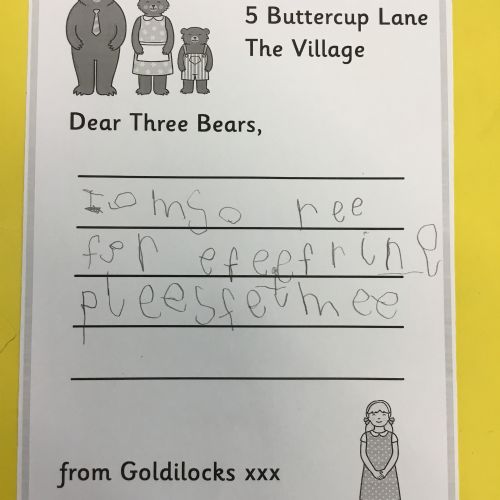 5 Buttercup Lane
The Village
Dear Three Bears,
I am so ree
for efeefring
pleesfetmee
from Goldilocks xxx